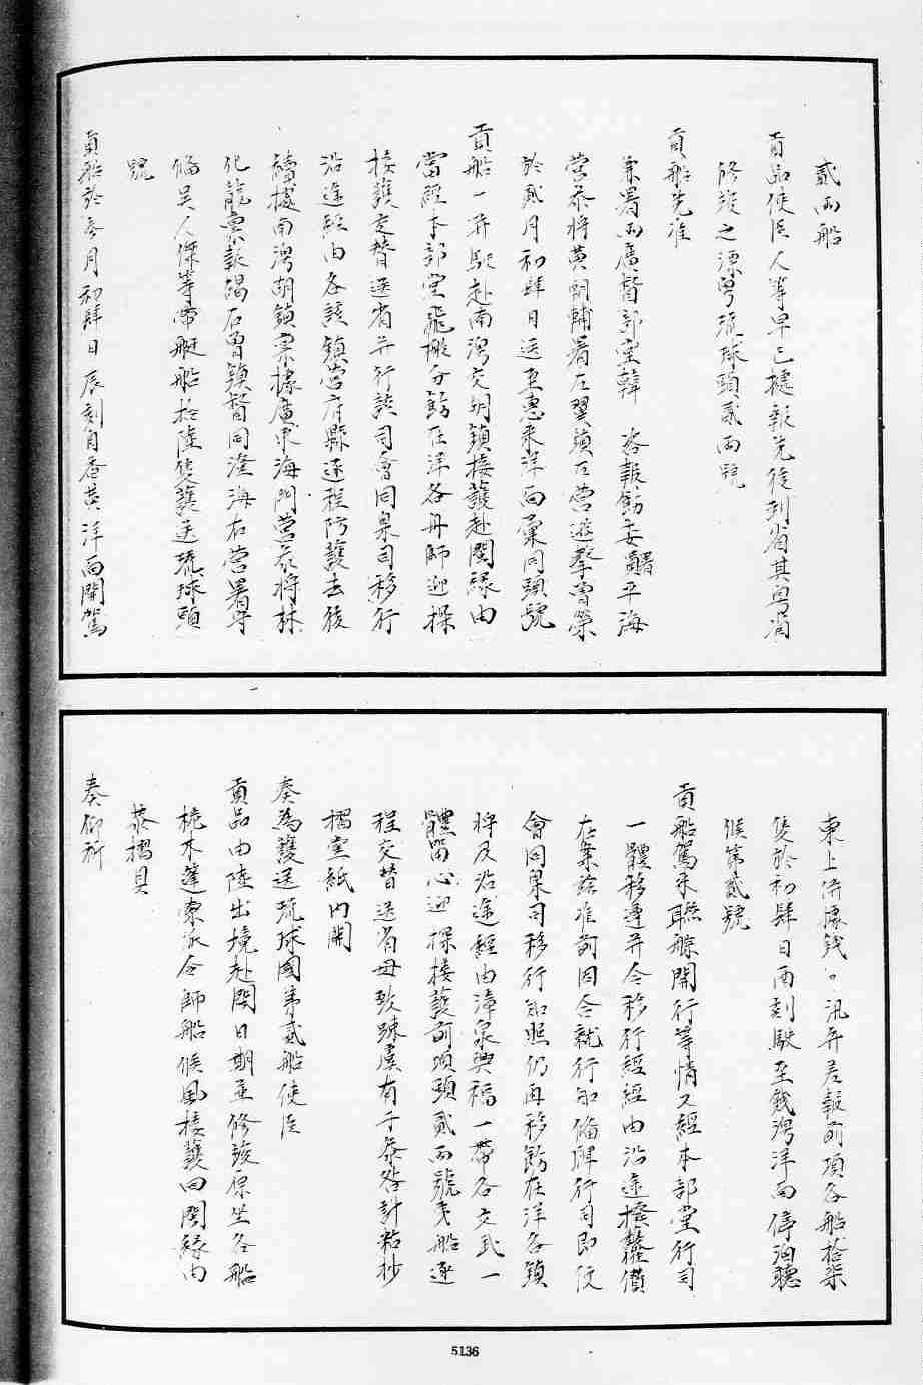 貳兩船
貢品使臣人等早已據報先後到省其粵省
修竣之漂灣琉球頭貳兩號
貢船先准
兼署兩廣督部堂韓　咨報飭委署平海
營叅將黃朝輔署左翼鎮左營遊擊曾榮
於貳月初肆日送至惠來洋面彙同頭號
貢船一并駛赴南灣交胡鎮接護赴閩緣由
當經本部堂飛檄分飭在洋各舟師迎探
接護交替送省并行該司會同臬司移行
沿途經由各該鎮營府縣逐程防護去後
續據南灣胡鎮稟據廣東海門營叅將林
化龍稟報碣石曾鎮督同澄海右營署守
俻吳人傑等帶艇船拾陸隻護送琉球頭
號
貢船於叁月初肆日辰刻自香黃洋面開駕
東上併據錢口汛弁差報前項各船拾柒
隻於初肆日酉刻駛至錢灣洋面停泊聽
候第貳號
貢船駕來聯䑸開行等情又經本部堂行司
一體移遵并令移行經由沿途撥償
在案茲准前因合就行知俻牌行司即便
會同臬司移行知照仍再移飭在洋各鎮
將及沿途經由漳泉興福一帶各文武一
體留心迎探接護前項頭貳兩號夷船逐
程交替送省毋致踈虞有干叅咎計粘抄
摺壹紙內開
奏為護送琉球國第貳船使臣
貢品由陸出境赴閩日期並修竣原坐各船
桅木蓬索派令師船候風接護回閩緣由
恭摺具
奏仰祈
5136